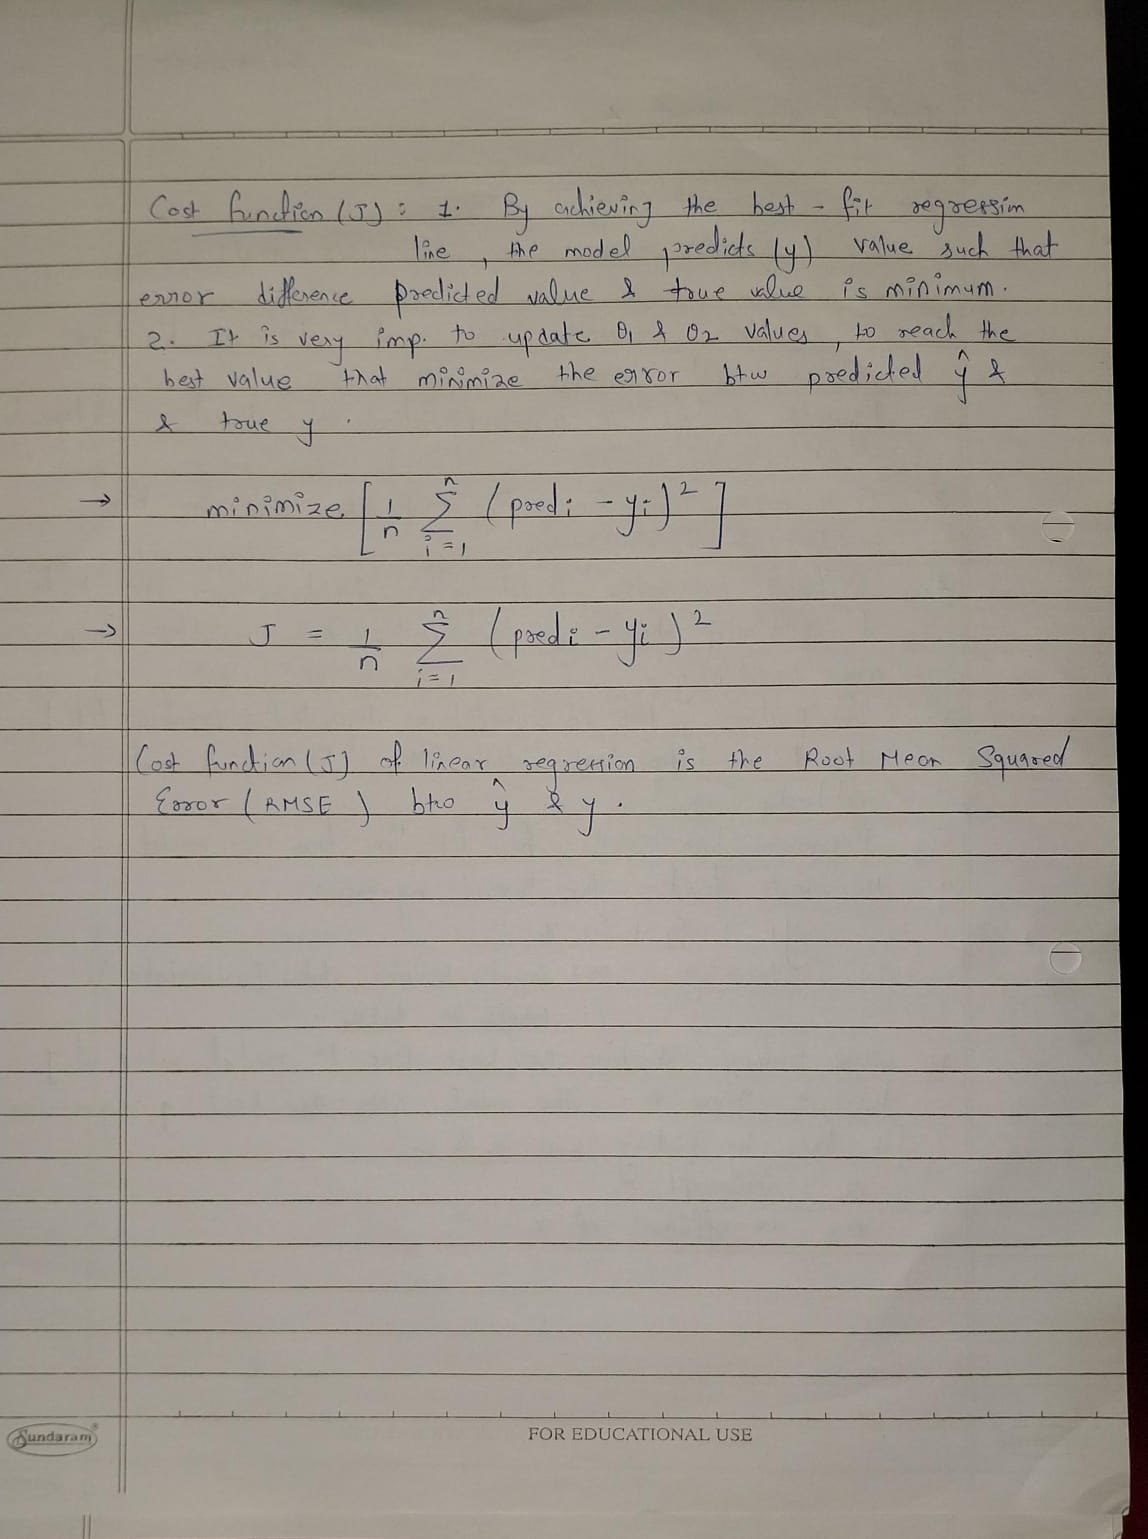 Cost function (J) : 1. By achieving the best - fit regression
line, the model predicts (y) value such that
error difference predicted value & true value is minimum.
2. It is very imp. to update θ1 & θ2 values, to reach the
best value that minimize the error btw predicted ŷ &
& true y.
→ minimize [1/n Σ_{i=1}^{n} (predi - yi)²]
→ J = 1/n Σ_{i=1}^{n} (predi - yi)²
Cost function (J) of linear regression is the Root Mean Squared
Error (RMSE) btw ŷ & y.
Sundaram
FOR EDUCATIONAL USE